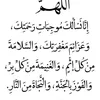 اللَّهُمَّ
إِنَّا نَسْأَلُكَ مُوجِبَاتِ رَحْمَتِكَ،
وَعَزَائِمَ مَغْفِرَتِكَ، وَالسَّلَامَةَ
مِنْ كُلِّ إِثْمٍ، وَالْغَنِيمَةَ مِنْ كُلِّ بِرٍّ،
وَالْفَوْزَ بِالْجَنَّةِ، وَالنَّجَاةَ مِنَ النَّارِ.